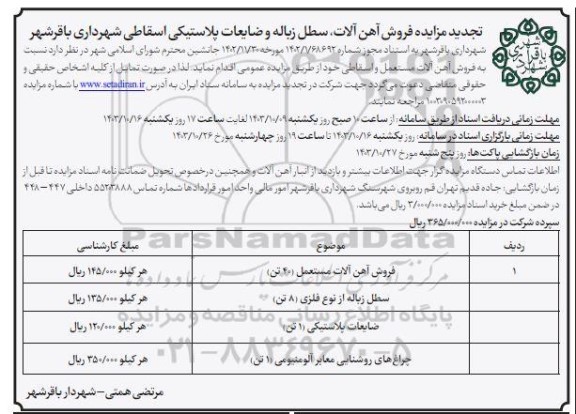 تجدید مزایده فروش آهن آلات، سطل زباله و ضایعات پلاستیکی اسقاطی شهرداری باقرشهر
شهرداری باقرشهر به استناد مجوز شماره ۱۴۰۲/۱/۶۸۶۹۲ مورخه ۱۴۰۲/۱۱/۳۰ جانشین محترم شورای اسلامی شهر در نظر دارد نسبت
به فروش آهن آلات مستعمل و اسقاطی خود از طریق مزایده عمومی اقدام نماید. لذا در صورت تمایل از کلیه اشخاص حقیقی و
حقوقی متقاضی دعوت می‌گردد جهت شرکت در تجدید مزایده به سامانه ستاد ایران به آدرس www.setadiran.ir با شماره مزایده
۱۰۰۳۰۹۰۵۹۲۰۰۰۰۰۳ مراجعه نمایند.
مهلت زمانی دریافت اسناد از طریق سامانه: از ساعت ۱۰ صبح روز یکشنبه ۱۴۰۳/۱۰/۰۹ لغایت ساعت ۱۷ روز یکشنبه ۱۴۰۳/۱۰/۱۶
مهلت زمانی بارگزاری اسناد در سامانه: روز یکشنبه ۱۴۰۳/۱۰/۱۶ تا ساعت ۱۹ روز چهارشنبه مورخ ۱۴۰۳/۱۰/۲۶
زمان بازگشایی پاکت‌ها: روز پنج شنبه مورخ ۱۴۰۳/۱۰/۲۷
اطلاعات تماس دستگاه مزایده گزار جهت اطلاعات بیشتر و بازدید از انبار آهن آلات و همچنین درخصوص تحویل ضمانت نامه اسناد مزایده تا قبل از
زمان بازگشایی: جاده قدیم تهران قم روبروی شهرسنگ شهرداری باقرشهر امور مالی واحد امور قراردادها شماره تماس ۵۵۲۳۸۸۸ داخلی ۴۴۷ – ۴۴۸
در ضمن مبلغ خرید اسناد مزایده ۳/۰۰۰/۰۰۰ ریال می‌باشد.
سپرده شرکت در مزایده ۳۶۵/۰۰۰/۰۰۰ ریال
ردیف موضوع مبلغ کارشناسی
۱ فروش آهن آلات مستعمل (۲۰ تن) هر کیلو ۱۴۵/۰۰۰ ریال
سطل زباله از نوع فلزی (۸ تن) هر کیلو ۱۳۵/۰۰۰ ریال
ضایعات پلاستیکی (۱ تن) هر کیلو ۱۲۰/۰۰۰ ریال
چراغ‌های روشنایی معابر آلومنیومی (۱ تن) هر کیلو ۳۵۰/۰۰۰ ریال
مرتضی همتی – شهردار باقرشهر
ParsNamadData
پایگاه اطلاع رسانی مناقصه و مزایده
۰۲۱-۸۸۳۴۹۶۷۰-۵